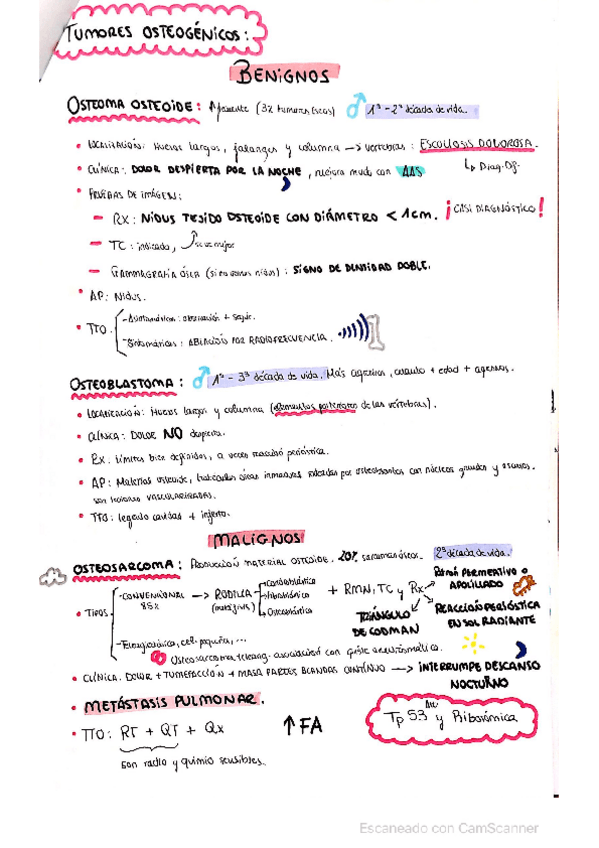 TUMORES OSTEOGÉNICOS:
BENIGNOS
OSTEOMA OSTEOIDE: (3% tumores óseos) 1ª - 2ª década de vida.
LOCALIZACIÓN: Huesos largos, falanges y columna → vértebras: ESCOLIOSIS DOLOROSA.
↳ Diag. Dif.
CLÍNICA: DOLOR DESPIERTA POR LA NOCHE, mejora mucho con AAS
PRUEBAS DE IMAGEN:
- RX: NIDUS TEJIDO OSTEOIDE CON DIÁMETRO < 1cm. ¡CASI DIAGNÓSTICO!
- TC: indicado, se ve mejor
- GAMMAGRAFÍA ÓSEA (si no vemos nidus): SIGNO DE DENSIDAD DOBLE.
AP: NIDUS.
TTO.
- Asintomáticos: observación + seguir.
- Sintomáticos: ABLACIÓN POR RADIOFRECUENCIA.
OSTEOBLASTOMA: 1ª - 3ª década de vida. Más agresivo, cuanto + edad + agresivos.
LOCALIZACIÓN: Huesos largos y columna (elementos posteriores de las vértebras).
CLÍNICA: DOLOR NO despierta.
Rx. Límites bien definidos, a veces reacción perióstica.
AP: Material osteoide, trabéculas óseas inmaduras rodeadas por osteoblastos con núcleos grandes y oscuros.
son lesiones VASCULARIZADAS.
TTO: legrado cavidad + injerto.
MALIGNOS
OSTEOSARCOMA: PRODUCCIÓN MATERIAL OSTEOIDE. 20% sarcomas óseos. 2ª década de vida.
TIPOS
- CONVENCIONAL 85% → RODILLA (metáfisis)
Condroblástico
Fibroblástico
Osteoblástico
+ RMN, TC y Rx
PATRÓN PERMEATIVO o APOLILLADO
TRIÁNGULO DE CODMAN
REACCIÓN PERIÓSTICA EN SOL RADIANTE
- Telangiectásico, cél. pequeñas, ...
Osteosarcoma telang. asociación con quiste aneurismático.
CLÍNICA. DOLOR + TUMEFACCIÓN + MASA PARTES BLANDAS CONTÍNUO → INTERRUMPE DESCANSO NOCTURNO
METÁSTASIS PULMONAR.
TTO: RT + QT + Qx ↑FA
son radio y quimio sensibles.
Tp 53 y Ribosómica
Escaneado con CamScanner